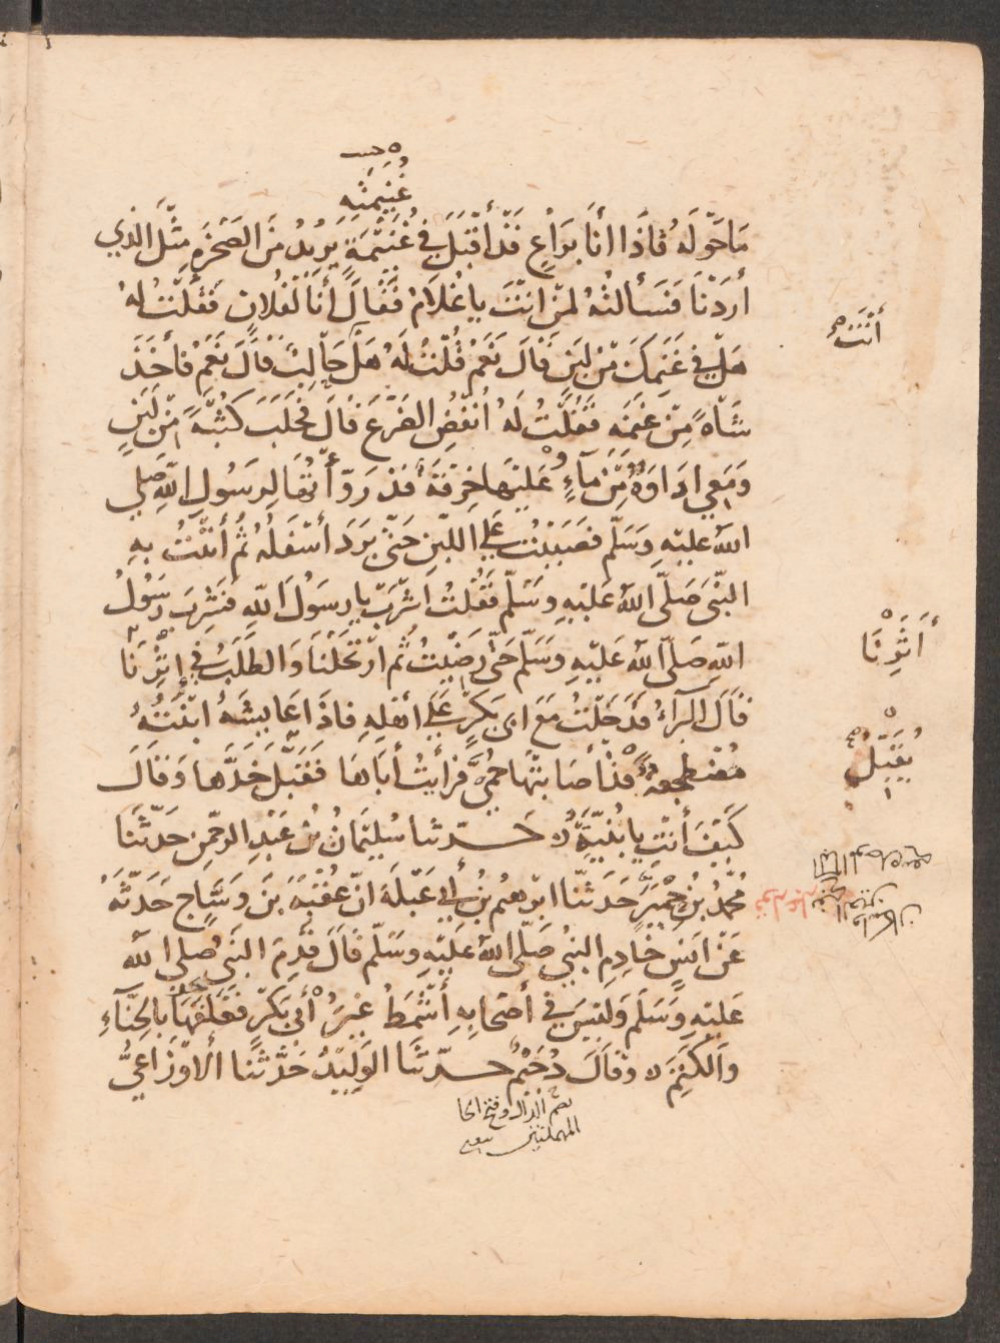 غُنَيْمَتِهِ
مَا حَوْلَهُ فَاِذَا أَنَا بِرَاعٍ قَدْ أَقْبَلَ فِي غُنَيْمَةٍ يُرِيدُ مِنَ الصَّخْرَةِ مِثْلَ الَّذِي
أَرَدْنَا فَسَأَلْتُهُ لِمَنْ اَنْتَ يا غُلَامُ فَقَالَ أَنَا لِفُلَانٍ فَقُلْتُ لَهُ
هَلْ فِي غَنَمِكَ مِنْ لَبَنٍ قَالَ نَعَمْ قُلْتُ لَهُ هَلْ حَالِبٌ قَالَ نَعَمْ فأَخَذَ
شَاةً مِنْ غَنَمِهِ فَقُلْتُ لَهُ اُنْفُضِ الضَّرْعَ قَالَ فَحَلَبَ كُثْبَةً مِنْ لَبَنٍ
وَمَعِي اِدَاوَةٌ مِنْ مَآءٍ عَلَيْهَا خِرْقَةٌ قَدْ رَوَّأْتُهَا لِرَسُولِ اللّهِ صَلَّي
اللّهُ عَلَيْهِ وَسَلَّمَ فَصَبَبْتُ عَلَي اللَّبَنِ حَتَّي بَرَدَ أَسْفَلُهُ ثُمَّ أَتَيْتُ بِهِ
النَّبِيَّ صَلَّي اللّهُ عَلَيْهِ وَسَلَّمَ فَقُلْتُ اَشْرَبْ يا رسَوُلَ اللّهِ فَشَرِبَ رَسُولُ
اللّهِ صَلَّي اللّهُ عَلَيْهِ وَسَلَّمَ حَتَّي رَضِيْتُ ثُمَّ ارْتَحَلْنَا وَالطَّلَبُ فِي اِثْرِنَا
قَالَ الْبَرَآءُ فَدَخَلْتُ مَعَ ابي بَكْرٍ عَلَي أَهْلِهِ فَاِذَا عَايِشَةُ ابْنَتُهُ
مُضْطَجِعَةٌ قَدْ أَصَابَتْهَا حُمَّي فَرَأَيْتُ أَبَاهَا فَقَبَّلَ خَدَّهَا وَقَالَ
كَيْفَ أَنْتِ يا بُنَيَّةُ ه حَدّثنا سُلَيْمَانُ بْنُ عَبْدِ الرحْمنِ حَدّثَنَا
مُحَمَّدُ بْنُ حِمْيَرٍ حَدَثَنّا ابْرهِيمُ بْنُ أَبِي عَبْلَةَ انّ عُقْبَةَ بَنَ وَسَّاجٍ حَدَّثَهُ
عَنْ انَسٍ خَادِمِ النبِيِّ صَلَّي اللّهُ عَلَيْهِ وسَلَّمَ قَالَ قَدِمَ النبَيُّ صَلَّي اللّهُ
عَلَيْهِ وَسَلَّمَ وَلَيْسَ فِي أَصْحَابِهِ أَشْمَطُ غَيْرُ أَبِي بَكْرٍ فَغَلَفَهَا بِالْحِنَّآءِ
وَالْكَتَمِ ه وقَالَ دُحَيْمٌ حَدّثَنَا الوَلِيْدُ حَدَّثَنَا الأَوْزَاعِيُّ
بضم الدال وفتح الحا
المهملتين
أَنْتَ
أَثَرِنَا
يُقَبِّلُ